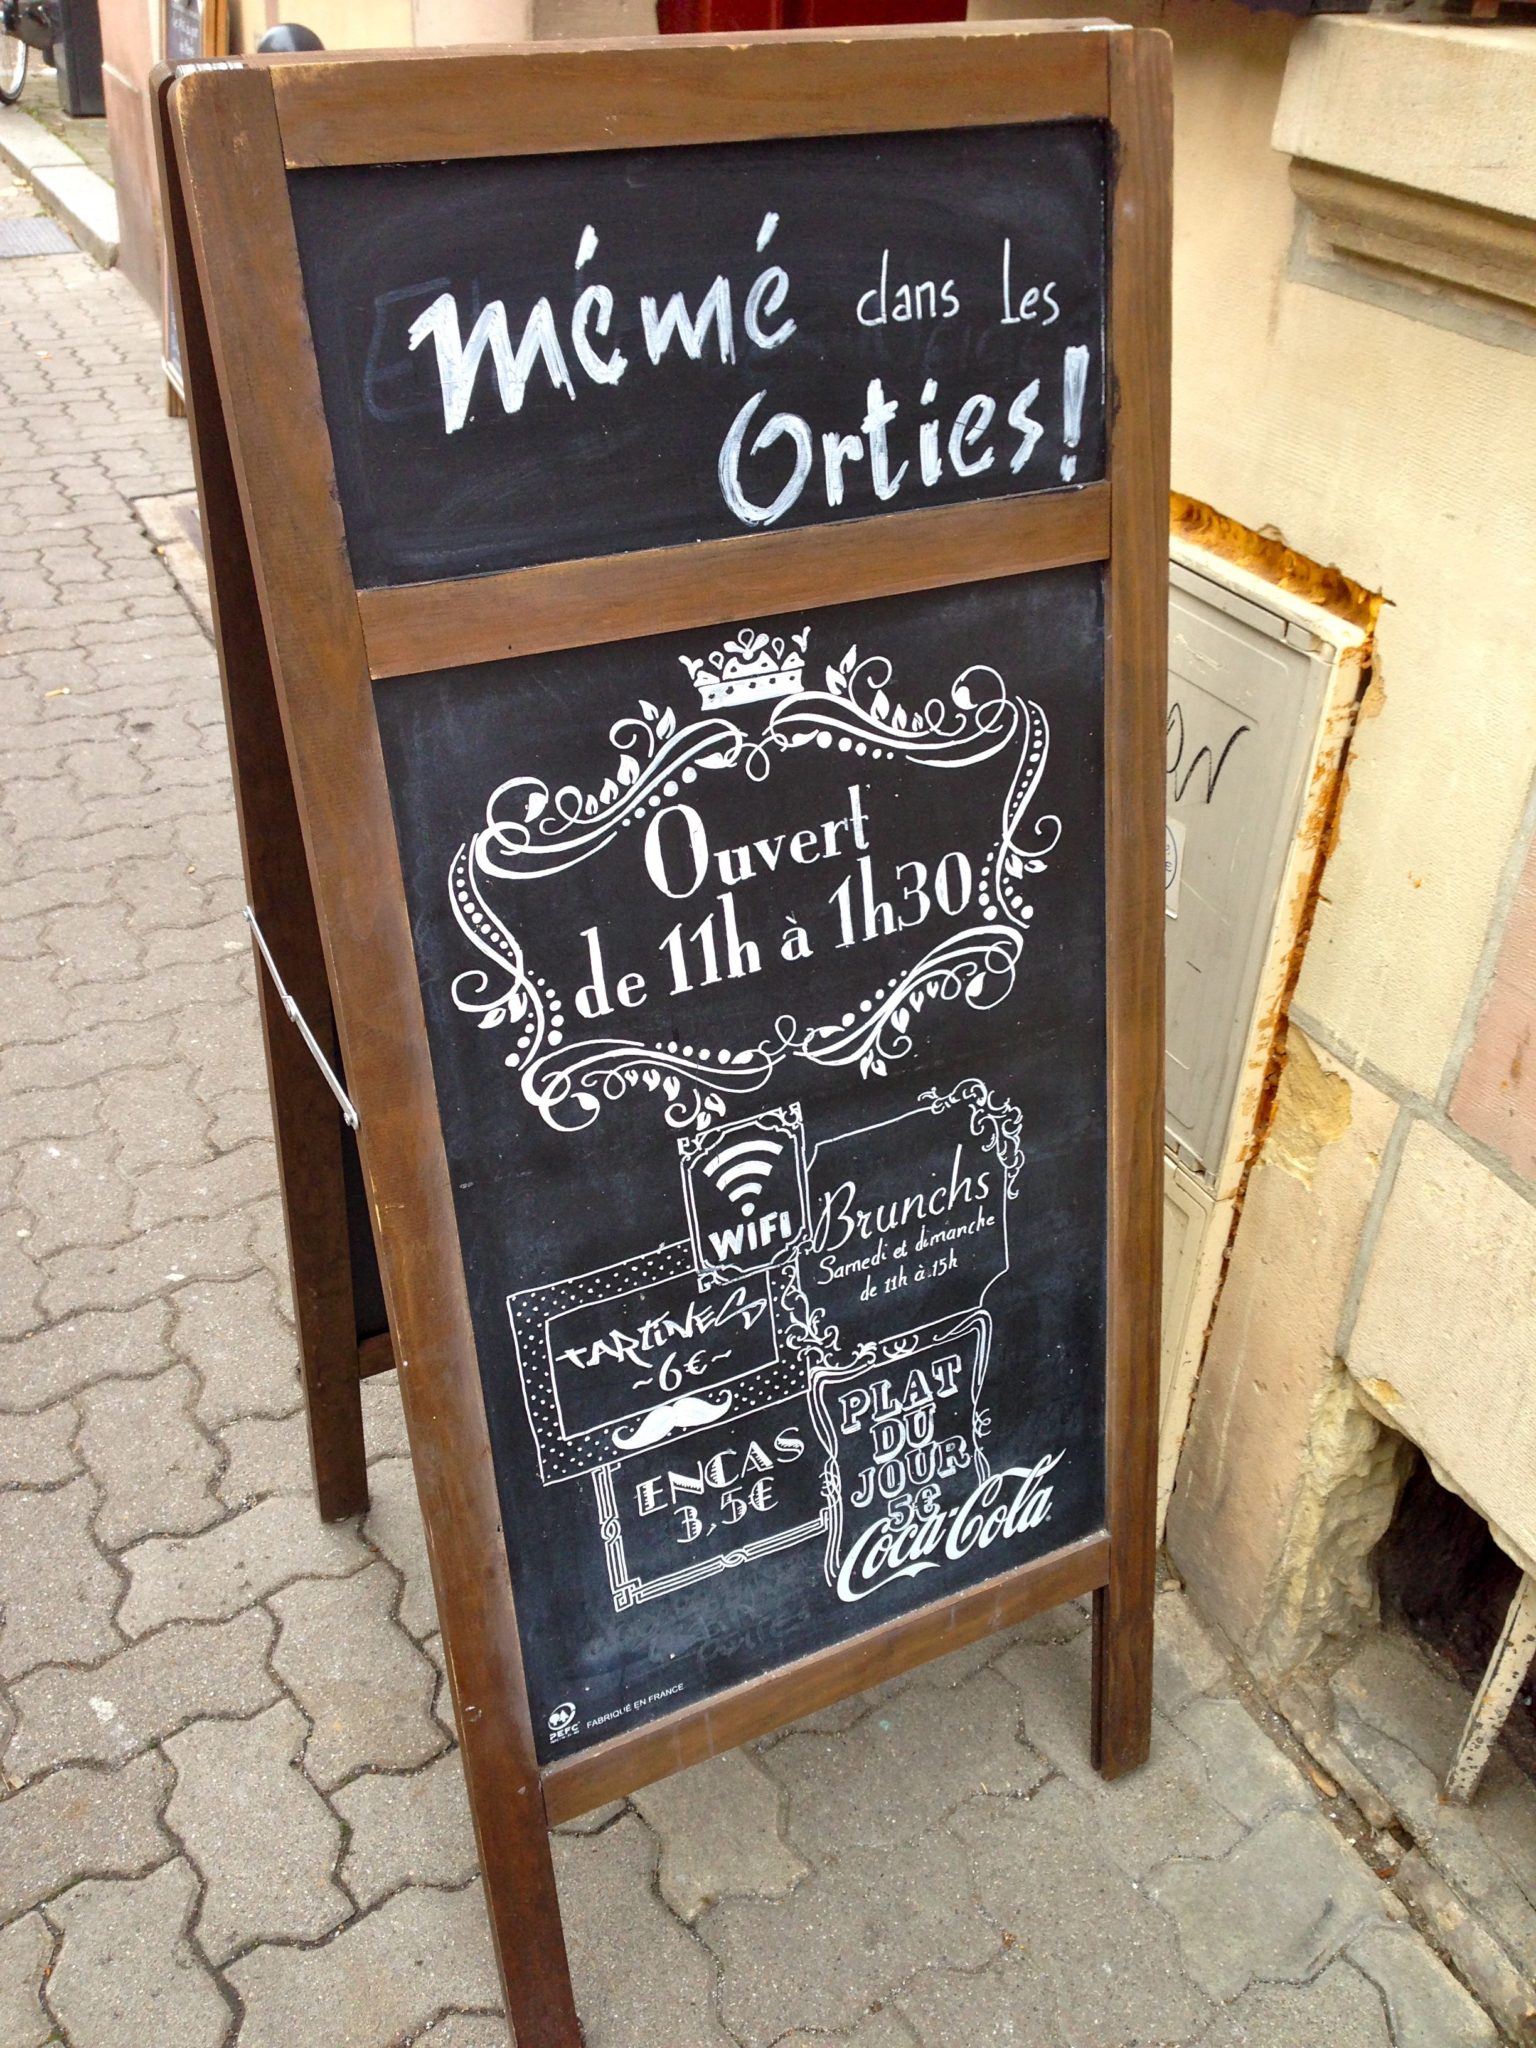 mémé dans les
Orties!
Ouvert
de 11h à 1h30
WiFi
Brunchs
Samedi et dimanche
de 11h à 15h
TARTINES
~6€~
PLAT
DU
JOUR
5€
ENCAS
3,5€
Coca-Cola
PEFC
FABRIQUÉ EN FRANCE